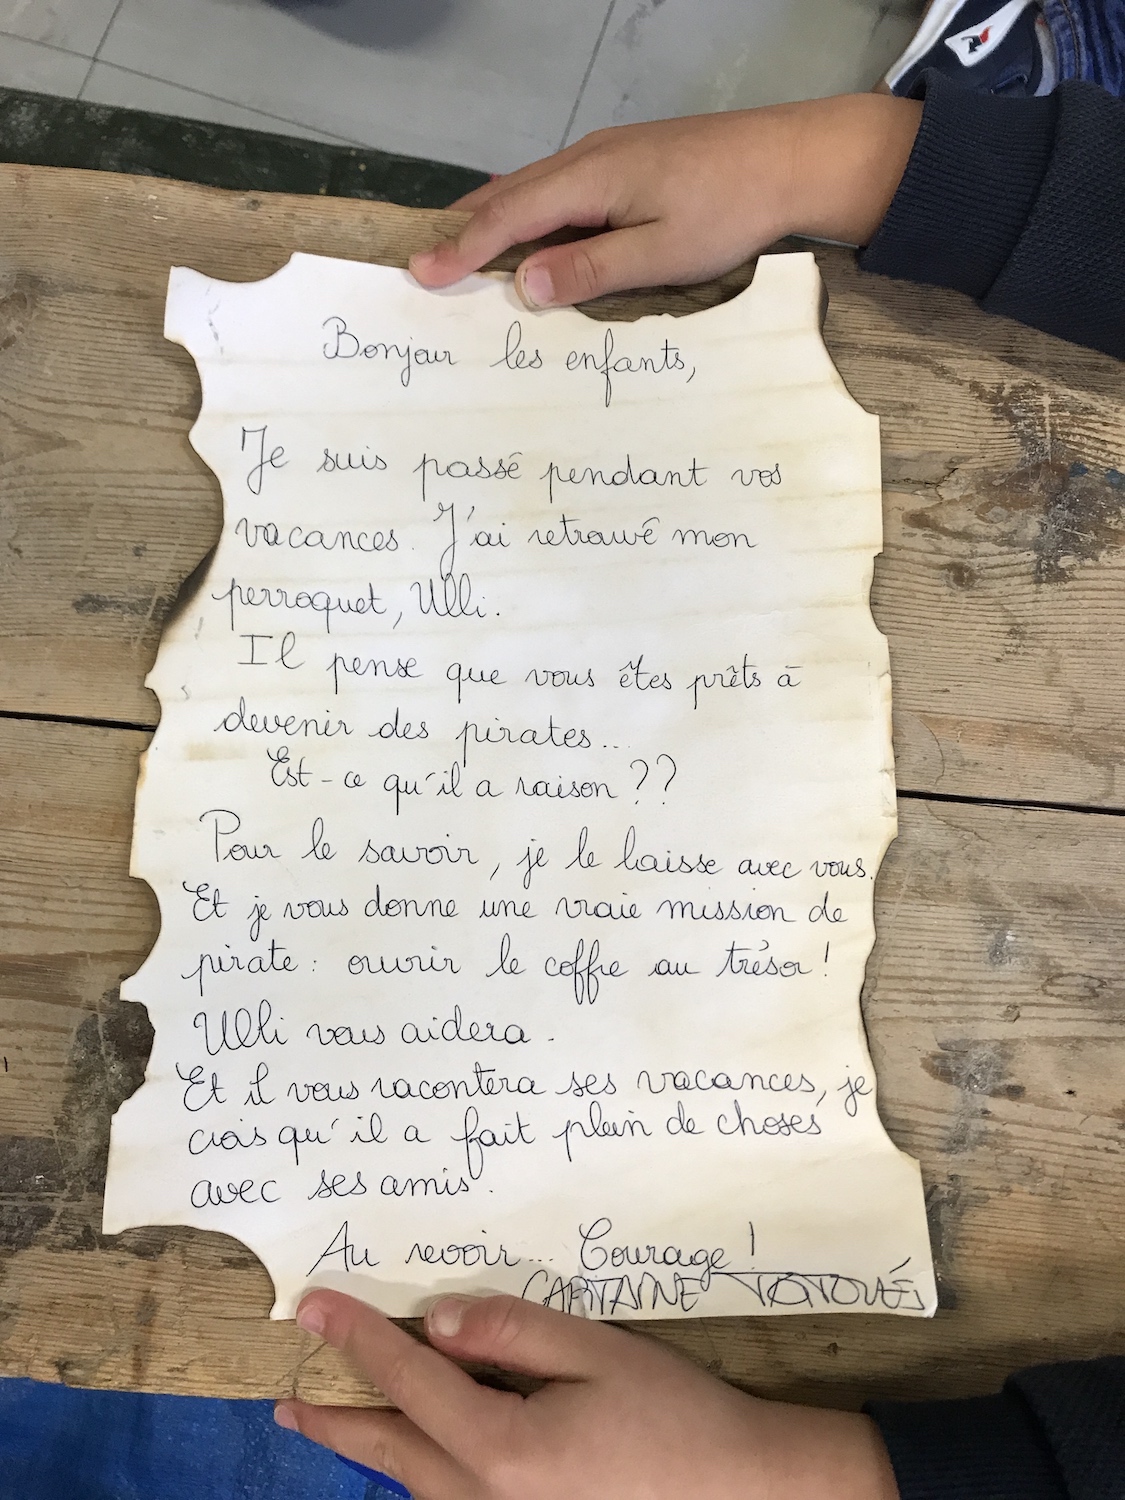 Bonjour les enfants,
Je suis passé pendant vos
vacances. J'ai retrouvé mon
perroquet, Ulli.
Il pense que vous êtes prêts à
devenir des pirates...
Est-ce qu'il a raison ??
Pour le savoir, je le laisse avec vous.
Et je vous donne une vraie mission de
pirate : ouvrir le coffre au trésor !
Ulli vous aidera.
Et il vous racontera ses vacances, je
crois qu'il a fait plein de choses
avec ses amis.
Au revoir... Courage !
CAPITAINE